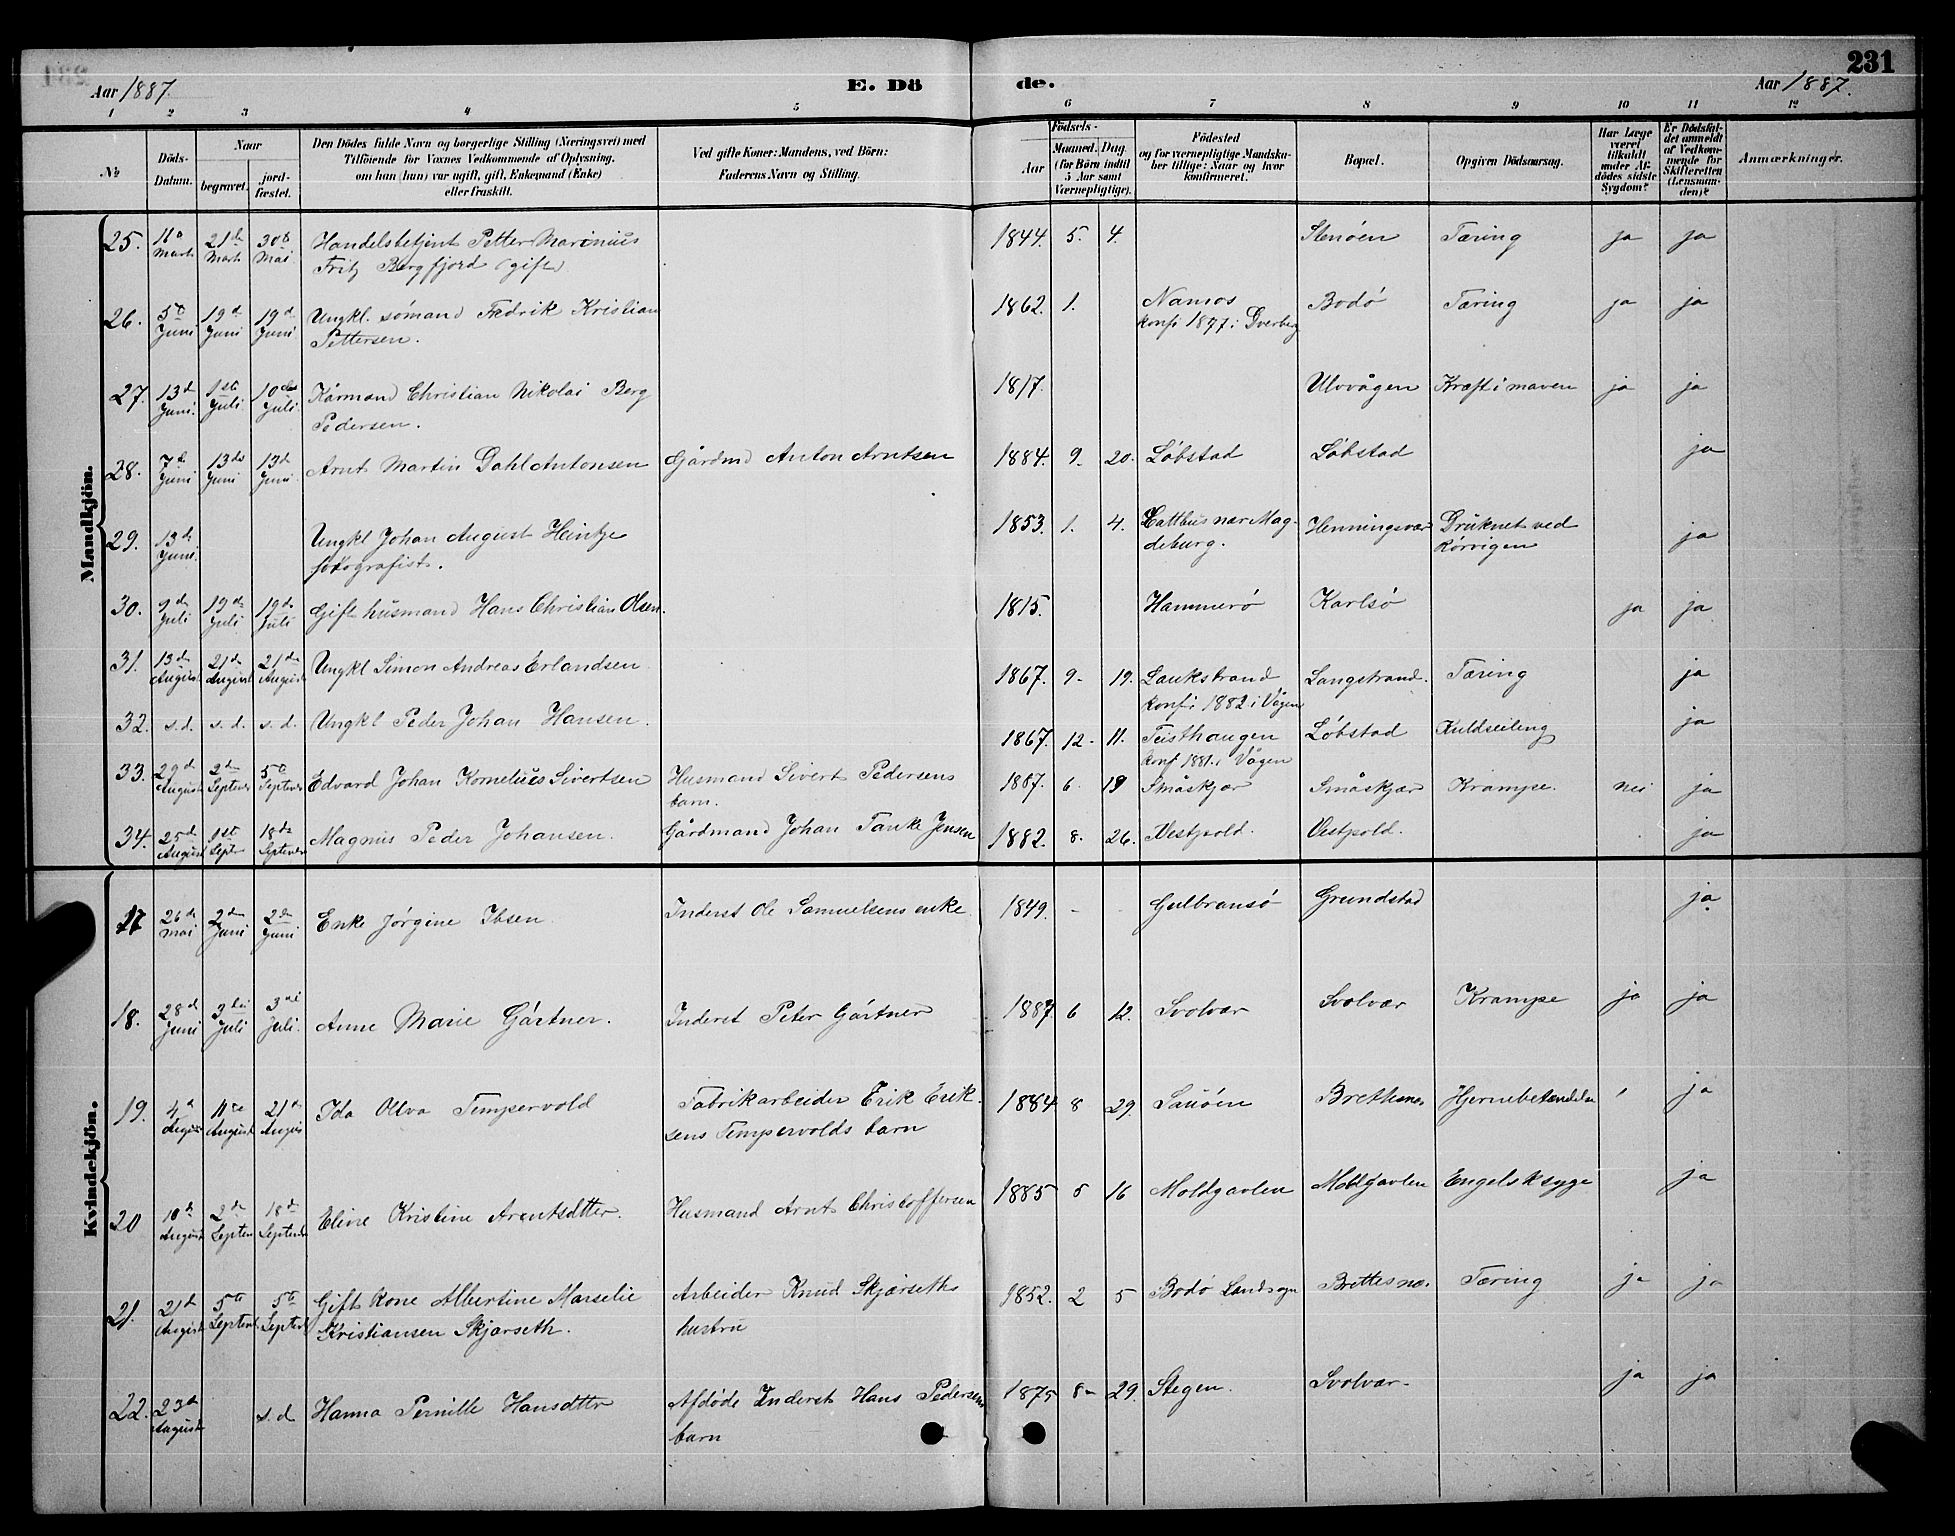 231
Aar 1887.
E. Døde.
Aar 1887.
1 2 3 4 5 6 7 8 9 10 11 12
№
Døds-Datum.
Naar
begravet.
jord-fæstet.
Den Dödes fulde Navn og borgerlige Stilling (Næringsvei) med
Tilföiende for Voxnes Vedkommende af Oplysning,
om han (hun) var ugift, gift, Enkemand (Enke)
eller fraskilt.
Ved gifte Koner: Mandens, ved Börn:
Faderens Navn og Stilling.
Födsels-
Aar
Maaned. Dag
(for Börn indtil
5 Aar samt
Værnepligtige).
Födested
og for værnepligtige Mandska-
ber tillige: Naar og hvor
konfirmeret.
Bopæl.
Opgiven Dödsaarsag.
Har Læge
været
tilkaldt
under Af-
dödes sidste
Sygdom?
Er Dödsfal-
det anmeldt
af Vedkom-
mende for
Skifteretten
(Lensman-
den)?
Anmærkninger.
Mandkjön.
25. Marts 21de Marts Mai Handelsbetjent Petter Marinius 1844. 5. 4. Stenöen Tæring ja ja
Fritz Bergfjord (gift)
26. 5te Juni 19d Juni 19d Juni Ungkl. sömand Fredrik Kristian 1862. 1. Namsos Bodö Tæring ja ja
Pettersen. konf. i Dverberg
27. 13d Juni. 1ste Juli 10de Juli. Kårmand Christian Nikolai Berg 1817. Ulvvågen Kræft i maven ja ja
Pedersen.
28. 7de Juni 13de Juni 13d Juni Arnt Martin Dahl Antonsen Gårdmd Anton Arntsen 1884. 9. 20. Löbstad Löbstad ja
29. 13de Juni. Ungkl Johan August Heintze 1853. 1. 4. nær Mag- Henningsvær Druknet ved ja
fotografist. deburg.
30. 9de Juli 19de Juli 19de Juli Gift husmand Hans Christian Olsen. 1815. Hammerö Karlsö ja ja
31. 13de August 21de August 21de August Ungkl Simon Andreas Erlandsen 1867. 9. 19. Laukstrand Langstrand. Tæring ja
konf. i 1882 i Vågen
32. s.d. s.d. s.d. Ungkl Peder Johan Hansen. 1867. 12. 11. Teisthaugen Löbstad Kuldseiling ja
konf 1881. i Vågen
33. 29d August 2de Septemb 5te Septemb Edvard Johan Kornelius Sivertsen Husmand Sivert Pedersens 1887. 6. 19 Småskjær Småskjær Krampe. nei ja
barn.
34. 25de August 1ste Septr 18de Septemb Magnus Peder Johansen. Gårdmand Johan Tanke Jensen 1882. 8. 26. Vestpold. Vestpold. ja
Kvindekjön.
17 26de Mai 2de Juni 2de Juni Enke Jörgine Ibsen Inderst Ole Samuelsens enke 1849. - - Gulbransö Grundstad ja
18. 28d Juni 3die Juli 3die Juli. Anne Marie Gärtner. Inderst Peter Gärtner 1887. 6 12. Svolvær Svolvær Krampe ja ja
19. 4d August 11te August 21de August Ida Olva Tempervold Fabrikarbeider Erik Erik- 1884 8 29. Sauöen Brethænes Hjernebetændelse ja
sens Tempervolds barn
20 10de August 2de Septem 18de Septemb Eline Kristine Arentsdtter. Husmand Arnt Christoffersen 1885 5 16 Moldgavlen Moldgavlen Engelsksyge ja
21. 21de August 5te Septemb 5te Septemb Gift kone Albertine Marselie Arbeider Knud Skjærseths 1852. 2 5 Bodö Landsogn Brettesnæs Tæring ja ja
Kristiansen Skjærseth. hustru
22. 23d August s.d Hanna Pernille Hansdtter Afdöde Inderst Hans Pedersens 1875 8 29. Stegen. Svolvær. ja ja
barn